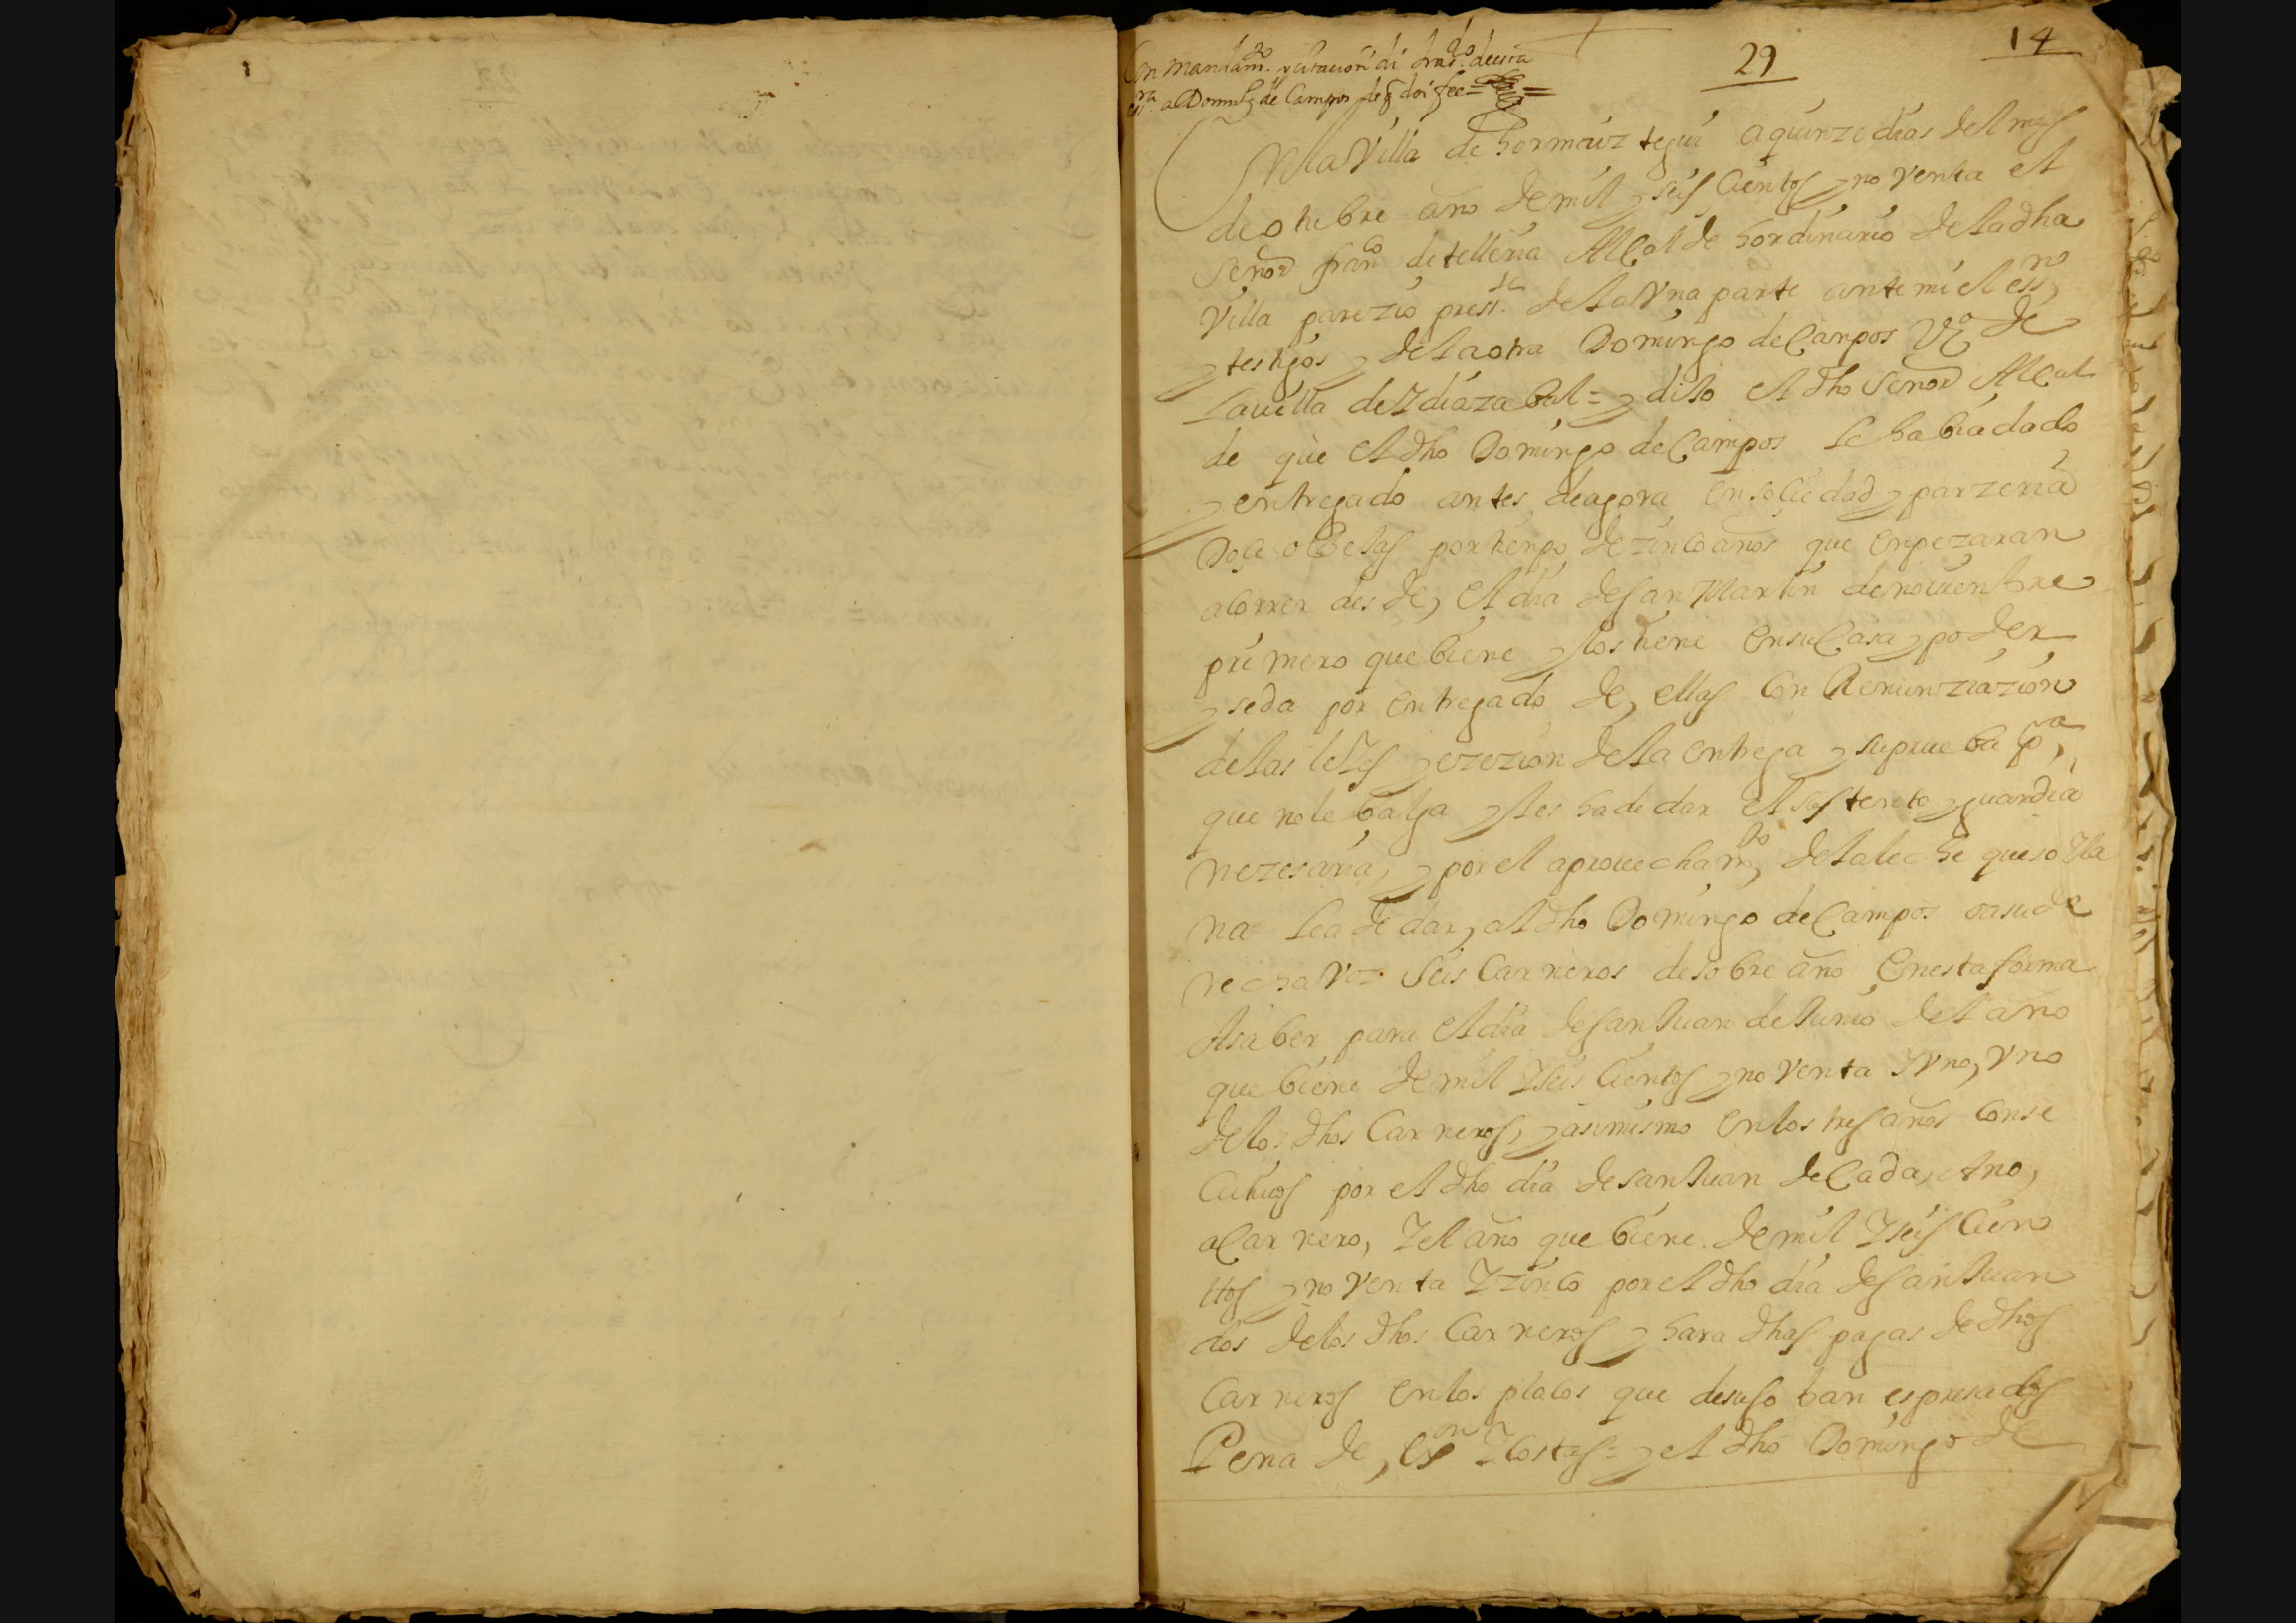 29
14
Con mandam.to y citaçion di tras.do de esta
ess.ra a Domingo de Campos de q doi fee =
En la Villa de hormaiz tegui a quinze dias del mes
de otubre año de mil y seis cientos y no venta el
señor fran.co de telleria AlCalde hordinario de la dha
Villa parezio press.te de la Vna parte ante mi el ess.no
y testigos y de la otra Domingo de Campos Vz.o de
La villa de Ydiazabal = y dijo el dho Señor AlCal
de que el dho Domingo de Campos le habia dado
y entregado antes de agora en soçiedad y parzeria
Doçe obejas por tienpo de zinco años que enpezaran
a Correr des de, el dia de san Martin de nouienbre
primero que biene y los tiene en su Casa y poder
y se da por entregado de, ellas Con Renunziazion
de las leyes y ezezion de la entrega y su prueba p.a,
que no le balga y les ha de dar el sustento y guardia
nezesaria, y por el aprouecham.to, de la leche queso y la
na le a de dar, al dho Domingo de Campos o a su de
recha Vz seis Carneros de sobre año En esta forma
A saber para el dia de san Juan de Junio del año
que biene de mil y seis çientos y no venta y vno, vno
de los dhos Carneros, y asimismo en los tres años Conse
Cutiuos por el dho dia de san Juan de Cada, Año,
a Carnero, y el año que biene de mil y seis Cien
ttos y no venta y zinco por el dho dia de san Juan
dos de los dhos Carneros y hara dhas pagas de dhos
Carneros en los plaços que desuso ban espresados
Pena de, ex.on y Costas = y el dho Domingo de